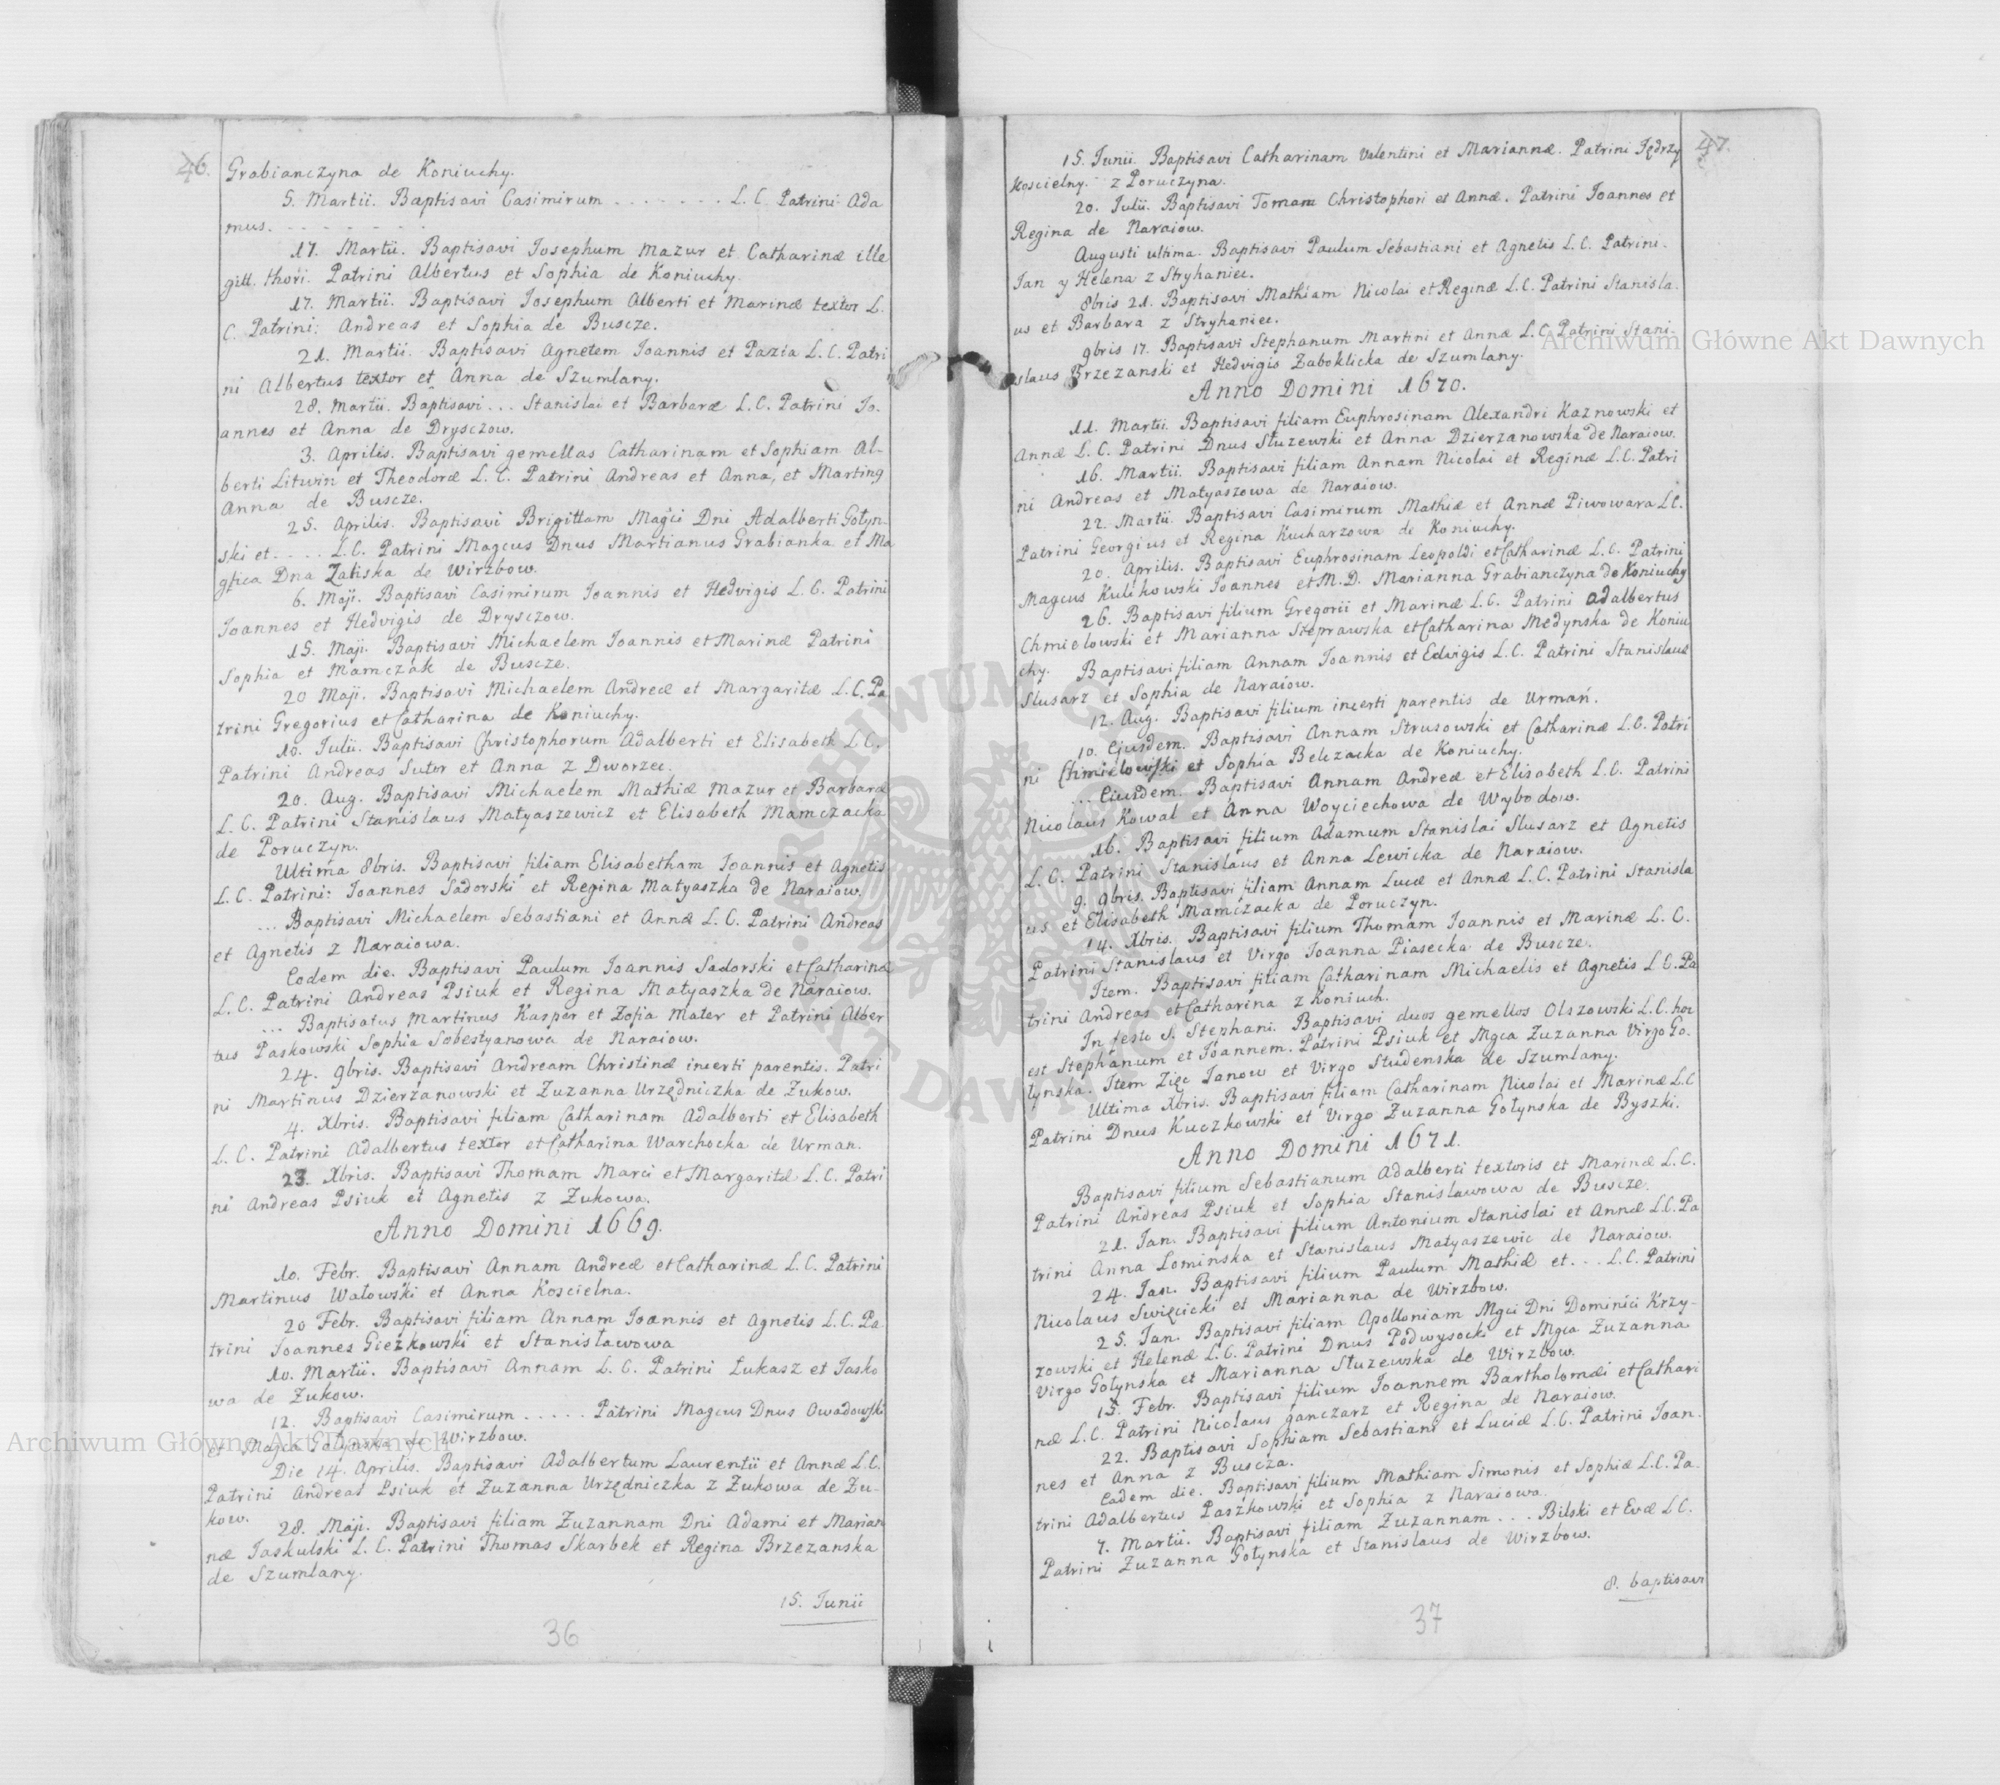 46.
Grabianczyna de Koniuchy.
5. Martii. Baptisavi Casimirum . . . . . . . L. C. Patrini Ada
mus. . . . . . . .
17. Martii. Baptisavi Josephum Mazur et Catharinæ ille
gitt. thori. Patrini Albertus et Sophia de Koniuchy.
17. Martii. Baptisavi Josephum Alberti et Marinæ textor L.
C. Patrini: Andreas et Sophia de Buscze.
21. Martii. Baptisavi Agnetem Joannis et Pazia L. C. Patri
ni Albertus textor et Anna de Szumlany.
28. Martii. Baptisavi . . . Stanislai et Barbaræ L. C. Patrini Jo-
annes et Anna de Drysczow.
3. Aprilis. Baptisavi gemellas Catharinam et Sophiam Al-
berti Litwin et Theodoræ L. C. Patrini Andreas et Anna, et Marting
Anna de Buscze.
25. Aprilis. Baptisavi Brigittam Magci Dni Adalberti Gołyn-
ski et . . . . L. C. Patrini Magcus Dnus Martianus Grabianka et Ma
gfica Dna Zaliska de Wirzbow.
6. Maji. Baptisavi Casimirum Joannis et Hedvigis L. C. Patrini
Joannes et Hedvigis de Drysczow.
15. Maji. Baptisavi Michaelem Joannis et Marinæ Patrini
Sophia et Mamczak de Buscze.
20 Maji. Baptisavi Michaelem Andreæ et Margaritæ L. C. Pa
trini Gregorius et Catharina de Koniuchy.
10. Julii. Baptisavi Christophorum Adalberti et Elisabeth L. C.
Patrini Andreas Sutor et Anna z Dworzec.
20. Aug. Baptisavi Michaelem Mathiæ Mazur et Barbaræ
L. C. Patrini Stanislaus Matyaszewicz et Elisabeth Mamczacka
de Poruczyn.
Ultima 8bris. Baptisavi filiam Elisabetham Joannis et Agnetis
L. C. Patrini: Joannes Sadorski et Regina Matyaszka de Naraiow.
. . . Baptisavi Michaelem Sebastiani et Annæ L. C. Patrini Andreas
et Agnetis z Naraiowa.
Eodem die. Baptisavi Paulum Joannis Sadorski et Catharinæ
L. C. Patrini Andreas Psiuk et Regina Matyaszka de Naraiow.
. . . Baptisatus Martinus Kasper et Zofia Mater et Patrini Alber
tus Paskowski Sophia Sobestyanowa de Naraiow.
24. 9bris. Baptisavi Andream Christinæ incerti parentis. Patri
ni Martinus Dzierzanowski et Zuzanna Urzędniczka de Zukow.
4. Xbris. Baptisavi filiam Catharinam Adalberti et Elisabeth
L. C. Patrini Adalbertus textor et Catharina Warchocka de Urman.
23. Xbris. Baptisavi Thomam Marci et Margaritæ L. C. Patri
ni Andreas Psiuk et Agnetis z Zukowa.
Anno Domini 1669.
10. Febr. Baptisavi Annam Andreæ et Catharinæ L. C. Patrini
Martinus Watowski et Anna Koscielna.
20 Febr. Baptisavi filiam Annam Joannis et Agnetis L. C. Pa
trini Joannes Giezkowski et Stanisławowa
10. Martii. Baptisavi Annam L. C. Patrini Łukasz et Jasko
wa de Zukow.
12. Baptisavi Casimirum . . . . . Patrini Magcus Dnus Owadowski
et Magca Gołynska de Wirzbow.
Die 14. Aprilis. Baptisavi Adalbertum Laurentii et Annæ L. C.
Patrini Andreas Psiuk et Zuzanna Urzędniczka z Zukowa de Zu-
kow.
28. Maji. Baptisavi filiam Zuzannam Dni Adami et Marian
næ Jaskulski L. C. Patrini Thomas Skarbek et Regina Brzezanska
de Szumlany.
15. Junii
36
47.
15. Junii. Baptisavi Catharinam Valentini et Mariannæ. Patrini Jędrzy
Koscielny. z Poruczyna.
20. Julii. Baptisavi Tomam Christophori et Annæ. Patrini Joannes et
Regina de Naraiow.
Augusti ultima. Baptisavi Paulum Sebastiani et Agnetis L. C. Patrini.
Jan y Helena z Stryhaniec.
8bris 21. Baptisavi Mathiam Nicolai et Reginæ L. C. Patrini Stanisla-
us et Barbara z Stryhaniec.
9bris 17. Baptisavi Stephanum Martini et Annæ L. C. Patrini Stani-
slaus Brzezanski et Hedvigis Zaboklicka de Szumlany.
Anno Domini 1670.
11. Martii. Baptisavi filiam Euphrosinam Alexandri Kaznowski et
Annæ L. C. Patrini Dnus Słuzewski et Anna Dzierzanowska de Naraiow.
16. Martii. Baptisavi filiam Annam Nicolai et Reginæ L. C. Patri
ni Andreas et Matyaszowa de Naraiow.
22. Martii. Baptisavi Casimirum Mathiæ et Annæ Piwowara L. C.
Patrini Georgius et Regina Kucharzowa de Koniuchy.
20. Aprilis. Baptisavi Euphrosinam Leopoldi et Catharinæ L. C. Patrini
Magcus Kulikowski Joannes et M. D. Marianna Grabianczyna de Koniuchy
26. Baptisavi filium Gregorii et Marinæ L. C. Patrini Adalbertus
Chmielowski et Marianna Steprawska et Catharina Medynska de Koniu
chy. Baptisavi filiam Annam Joannis et Edvigis L. C. Patrini Stanislaus
Slusarz et Sophia de Naraiow.
12. Aug. Baptisavi filium incerti parentis de Urmań.
10. Ejusdem. Baptisavi Annam Strusowski et Catharinæ L. C. Patri
ni Chmielowski et Sophia Belczacka de Koniuchy.
. . . Ejusdem. Baptisavi Annam Andreæ et Elisabeth L. C. Patrini
Nicolaus Kowal et Anna Woyciechowa de Wybodow.
16. Baptisavi filium Adamum Stanislai Slusarz et Agnetis
L. C. Patrini Stanislaus et Anna Lewicka de Naraiow.
9. 9bris. Baptisavi filiam Annam Lucæ et Annæ L. C. Patrini Stanisla
us et Elisabeth Mamczacka de Poruczyn.
14. Xbris. Baptisavi filium Thomam Joannis et Marinæ L. C.
Patrini Stanislaus et Virgo Joanna Piasecka de Buscze.
Item. Baptisavi filiam Catharinam Michaelis et Agnetis L. C. Pa
trini Andreas et Catharina z Koniuch.
In festo S. Stephani. Baptisavi duos gemellos Olszowski L. C. hoc
est Stephanum et Joannem. Patrini Psiuk et Mgca Zuzanna Virgo Go-
lynska. Item Zięc Janow et Virgo Studenska de Szumlany.
Ultima Xbris. Baptisavi filiam Catharinam Nicolai et Marinæ L. C
Patrini Dnus Kuczkowski et Virgo Zuzanna Gołynska de Byszki.
Anno Domini 1671.
Baptisavi filium Sebastianum Adalberti textoris et Marinæ L. C.
Patrini Andreas Psiuk et Sophia Stanislawowa de Buscze.
21. Jan. Baptisavi filium Antonium Stanislai et Annæ L. C. Pa
trini Anna Lominska et Stanislaus Matyaszewic de Naraiow.
24. Jan. Baptisavi filium Paulum Mathiæ et . . . L. C. Patrini
Nicolaus Swięcicki et Marianna de Wirzbow.
25. Jan. Baptisavi filiam Apolloniam Mgci Dni Dominici Krzy-
zowski et Helenæ L. C. Patrini Dnus Podwysocki et Mgca Zuzanna
Virgo Gołynska et Marianna Słuzewska de Wirzbow.
15. Febr. Baptisavi filium Joannem Bartholomæi et Cathari
næ L. C. Patrini Nicolaus ganczarz et Regina de Naraiow.
22. Baptisavi Sophiam Sebastiani et Luciæ L. C. Patrini Joan-
nes et Anna z Buscza.
Eadem die. Baptisavi filium Mathiam Simonis et Sophiæ L. C. Pa-
trini Adalbertus Paszkowski et Sophia z Naraiowa.
7. Martii. Baptisavi filiam Zuzannam . . . Bilski et Evæ L. C.
Patrini Zuzanna Gołynska et Stanislaus de Wirzbow.
8. baptisavi
37
Archiwum Główne Akt Dawnych
Archiwum Główne Akt Dawnych
ARCHIWUM GŁÓWNE AKT DAWNYCH